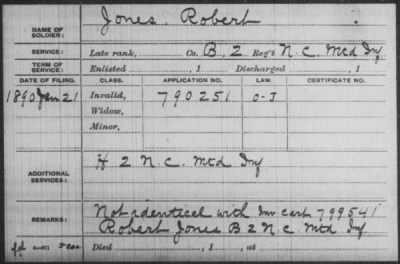 NAME OF SOLDIER: Jones, Robert
SERVICE: Late rank, Co. B, 2 Reg't N.C. Mtd Inf
TERM OF SERVICE: Enlisted , 1 Discharged , 1
DATE OF FILING. CLASS. APPLICATION NO. LAW. CERTIFICATE NO.
1890 Jan 21 Invalid, 790251 O-J
Widow,
Minor,
ADDITIONAL SERVICES: H 2 N.C. Mtd Inf
REMARKS: Not identical with Inv cert 799541
Robert Jones B 2 N.C. Mtd Inf
Died , 1 , at